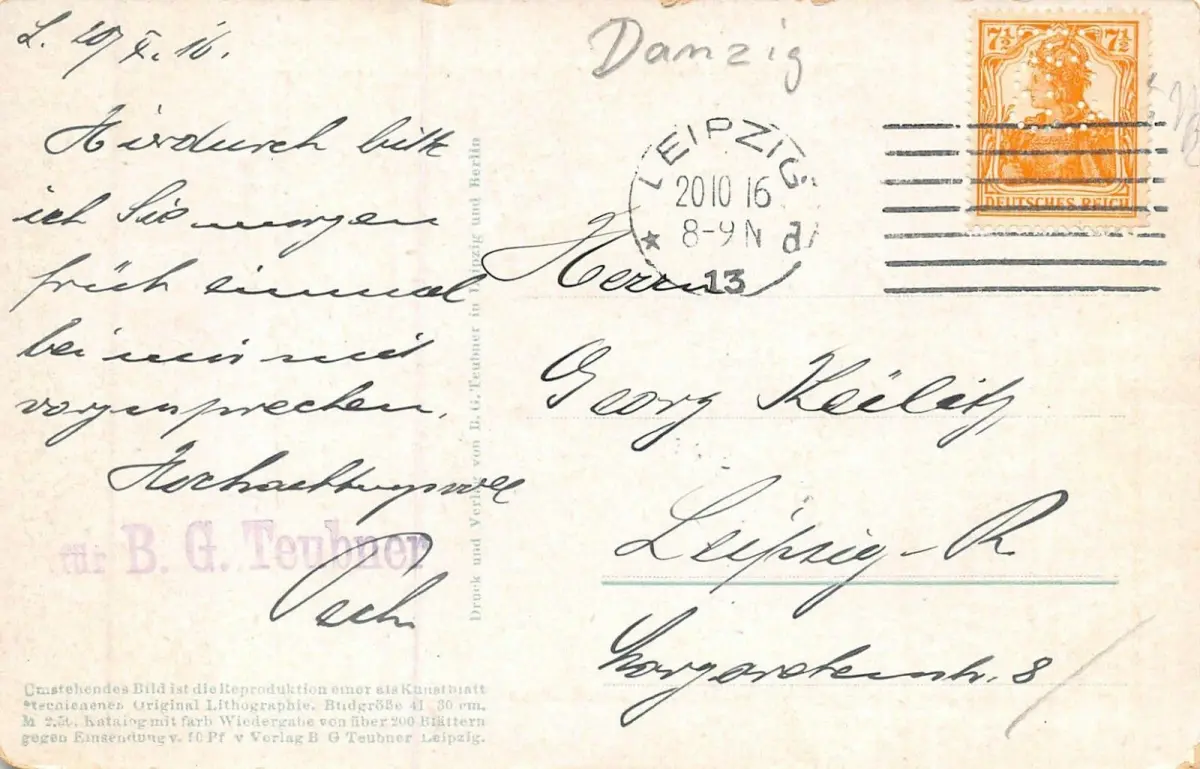 L. 20/X. 16.
Hierdurch bitte
ich Sie morgen
früh einmal
bei mir mit
vorzusprechen.
Hochachtungsvoll
für B. G. Teubner
Pech
Umstehendes Bild ist die Reproduktion einer als Kunstblatt
erschienenen Original Lithographie. Bildgröße 41 30 cm.
M 2.50. Katalog mit farb Wiedergabe von über 200 Blättern
gegen Einsendung v. 10 Pf v Verlag B G Teubner Leipzig.
Druck und Verlag von B. G. Teubner in Leipzig und Berlin
Danzig
LEIPZIG
20 10 16
8-9 N
* 13 d
7½ 7½
DEUTSCHES REICH
Herrn
Georg
Leipzig-R
8